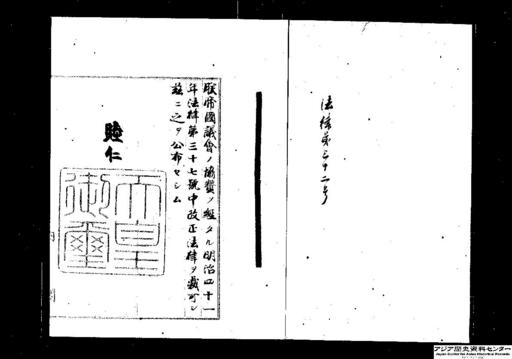 法律第三十二号
朕帝國議會ノ協賛ヲ經タル明治四十一
年法律第三十七號中改正法律ヲ裁可シ
茲ニ之ヲ公布セシム
睦仁
天皇
御璽
アジア歴史資料センター
Japan Center for Asian Historical Records